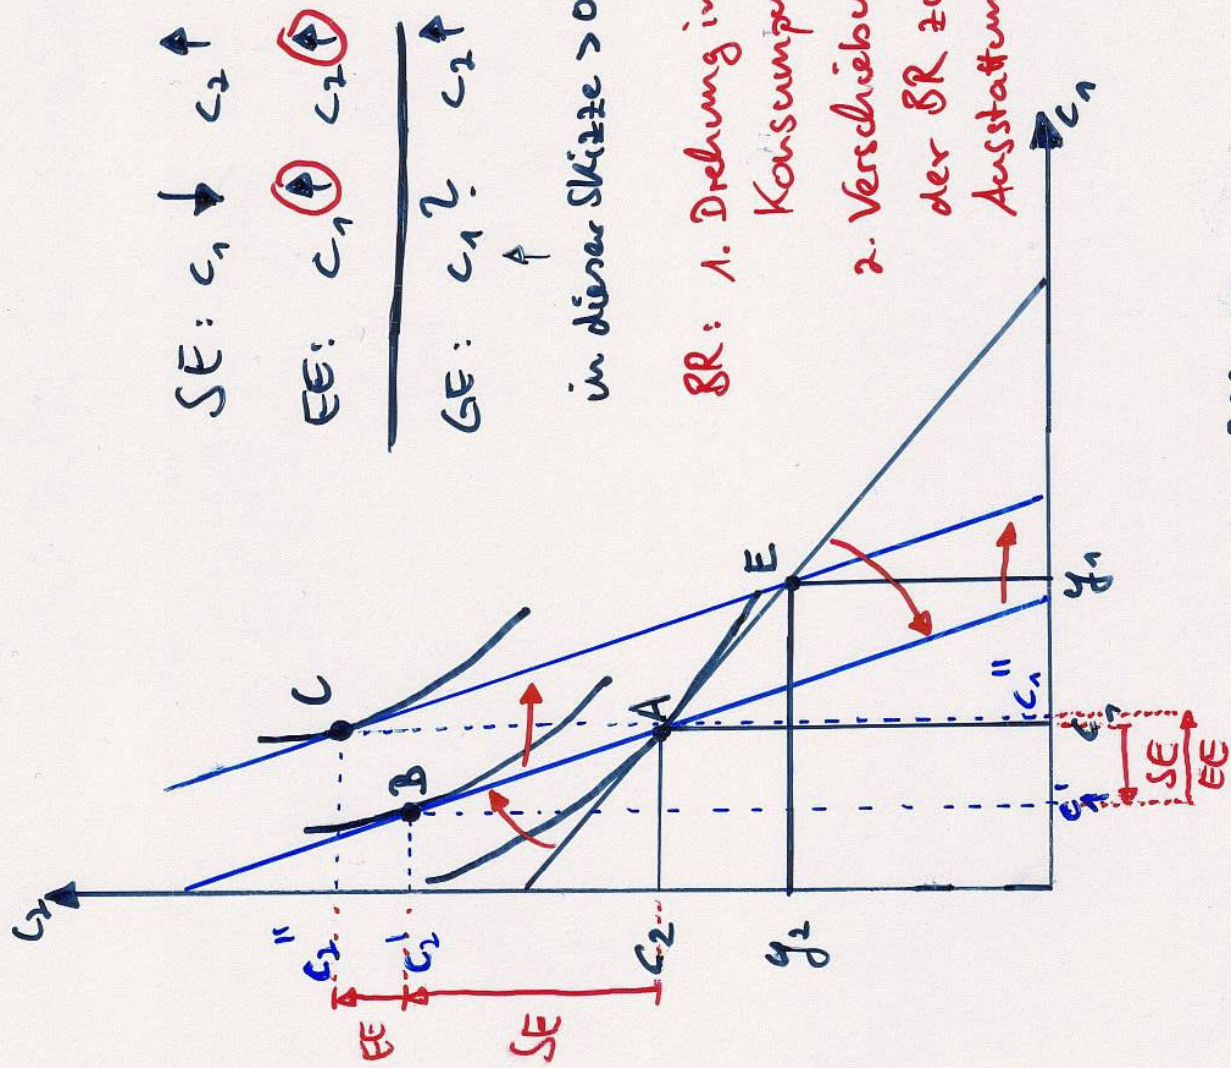 SE: c₁ ↓ c₂ ↑
EE: c₁ ↑ c₂ ↑
GE: c₁ ? c₂ ↑
↑
in dieser Skizze > 0
BR: 1. Drehung in
Konsump
2. Verschieb
der BR z
Ausstattun
c₂
c₂''
c₂'
c₂
y₂
EE
SE
C
B
A
E
c₁'
c₁
c₁''
y₁
c₁
SE
EE